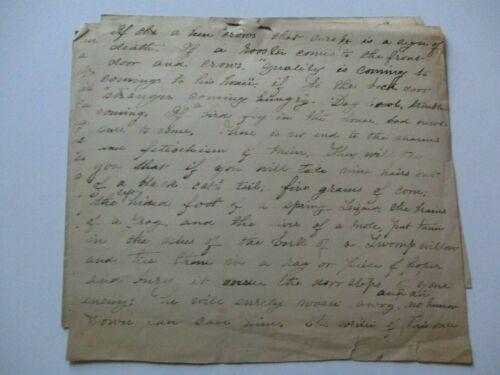 If a hen crows that surely is a sign of
death. If a rooster comes to the front
door and crows. "Quality is coming to
coming to his house, if to the back door
"stranger coming hungry." Dog howl, trouble
coming. If bird fly in the house bad news
sure to come. There is no end to the charms
and fetischism of them. They will tell
you that if you will take nine hairs out
of a black cat's tail, five grains of corn,
the left hind foot of a spring lizard, the brains
of a frog, and the liver of a mole, put them
in the ashes of the bark of a swamp willow
and tie them in a rag or piece of paper
and bury it under the door steps of your
enemy; He will surely waste away, and die no human
power can save him. The writer of this once